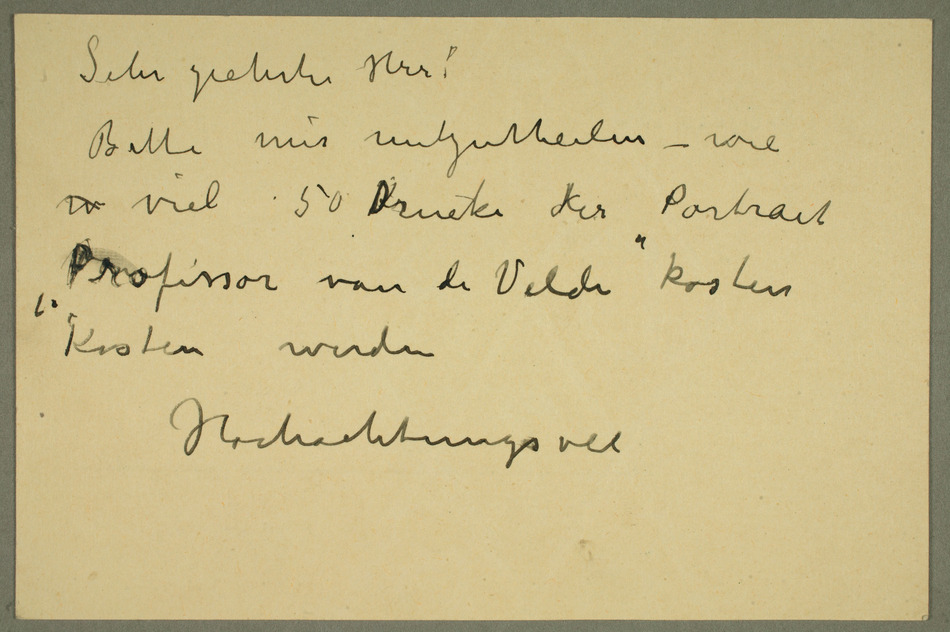 Sehr geehrter Herr!
Bitte mir mitzutheilen – wie
w viel 50 Drucke der Portrait
„Professor van de Velde" kosten
kosten werden
Hochachtungsvoll